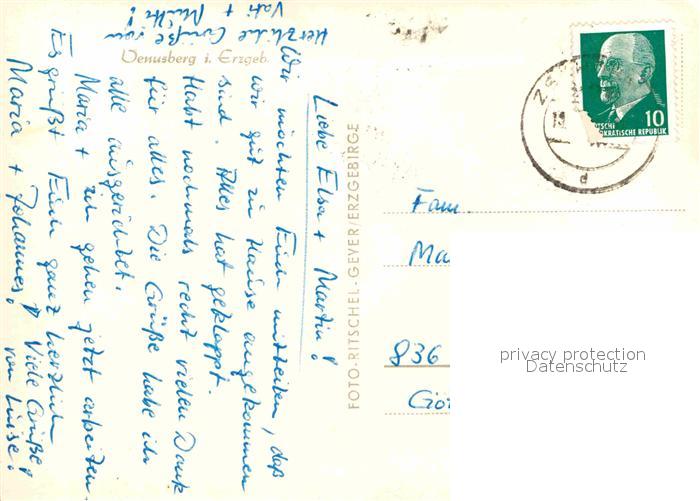 Venusberg i. Erzgeb.
Liebe Elsa + Martin!
Wir möchten Euch mitteilen, daß
wir gut zu Hause angekommen
sind. Alles hat geklappt.
Habt nochmals recht vielen Dank
für alles. Die Grüße habe ich
alle ausgerichtet.
Maria + ich gehen jetzt arbeiten.
Es grüßt Euch ganz herzlich
Maria + Johannes! Viele Grüße
von Luise!
Herzliche Grüße von
Vati + Mutti!
FOTO-RITSCHEL-GEYER/ERZGEBIRGE
10
DEMOKRATISCHE REPUBLIK
Fam.
Ma
836
Gör
privacy protection
Datenschutz